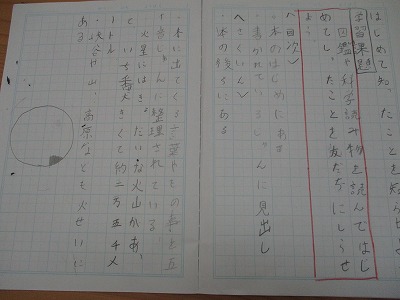 はじめて知ったことを知らせよ
学習課題
図鑑や科学読み物を読んではじ
めてしったことを友だちにしょうせ
よう。
〈目次〉
・本のはじめにある
・書かれているじゅんに見出し
〈さくいん〉
・本の後ろにある
・本に出てくる言葉やその事を五
十音じゅんに整理されている。
火星にはきょだいな火山があ
といち番大きくて約二万五千メ
ートル
・峡谷や山、高原なども火せいに
ある